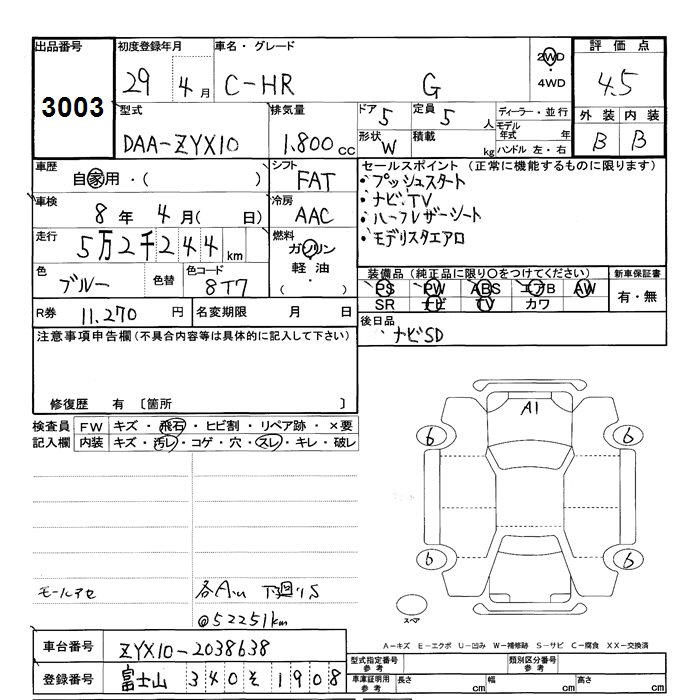 出品番号 初度登録年月 車名・グレード
3003 29 4月 C-HR G 2WD ・ 4WD
評価点
4.5
外装 内装
B B
型式 排気量 ドア 5 定員 5 人 ディーラー・並行
DAA-ZYX10 1,800cc 形状 W 積載 kg モデル年式 年
ハンドル 左・右
車歴 自家用・( ) シフト FAT
車検 8年 4月( 日) 冷房 AAC
走行 5万2千244km 燃料 ガソリン 軽油 ・( )
色 ブルー 色替 色コード 8T7
R券 11,270円 名変期限 月 日
セールスポイント (正常に機能するものに限ります)
・プッシュスタート
・ナビ.TV
・ハーフレザーシート
・モデリスタエアロ
装備品(純正品に限り○をつけてください) 新車保証書
PS PW ABS エアB AW 有・無
SR ナビ TV カワ
後日品
・ナビSD
注意事項申告欄(不具合内容等は具体的に記入して下さい)
修復歴 有 〔箇所 〕
検査員 FW キズ・飛石・ヒビ割・リペア跡・×要
記入欄 内装 キズ・汚レ・コゲ・穴・スレ・キレ・破レ
A1
6 6
6 6
スペア
モールアセ
@52251km
A-キズ E-エクボ U-凹み W-補修跡 S-サビ C-腐食 XX-交換済
車台番号 ZYX10-2038638
登録番号 富士山 340そ1908
型式指定番号 参考 類別区分番号 参考
車庫証明用 参考 長さ cm 幅 cm 高さ cm